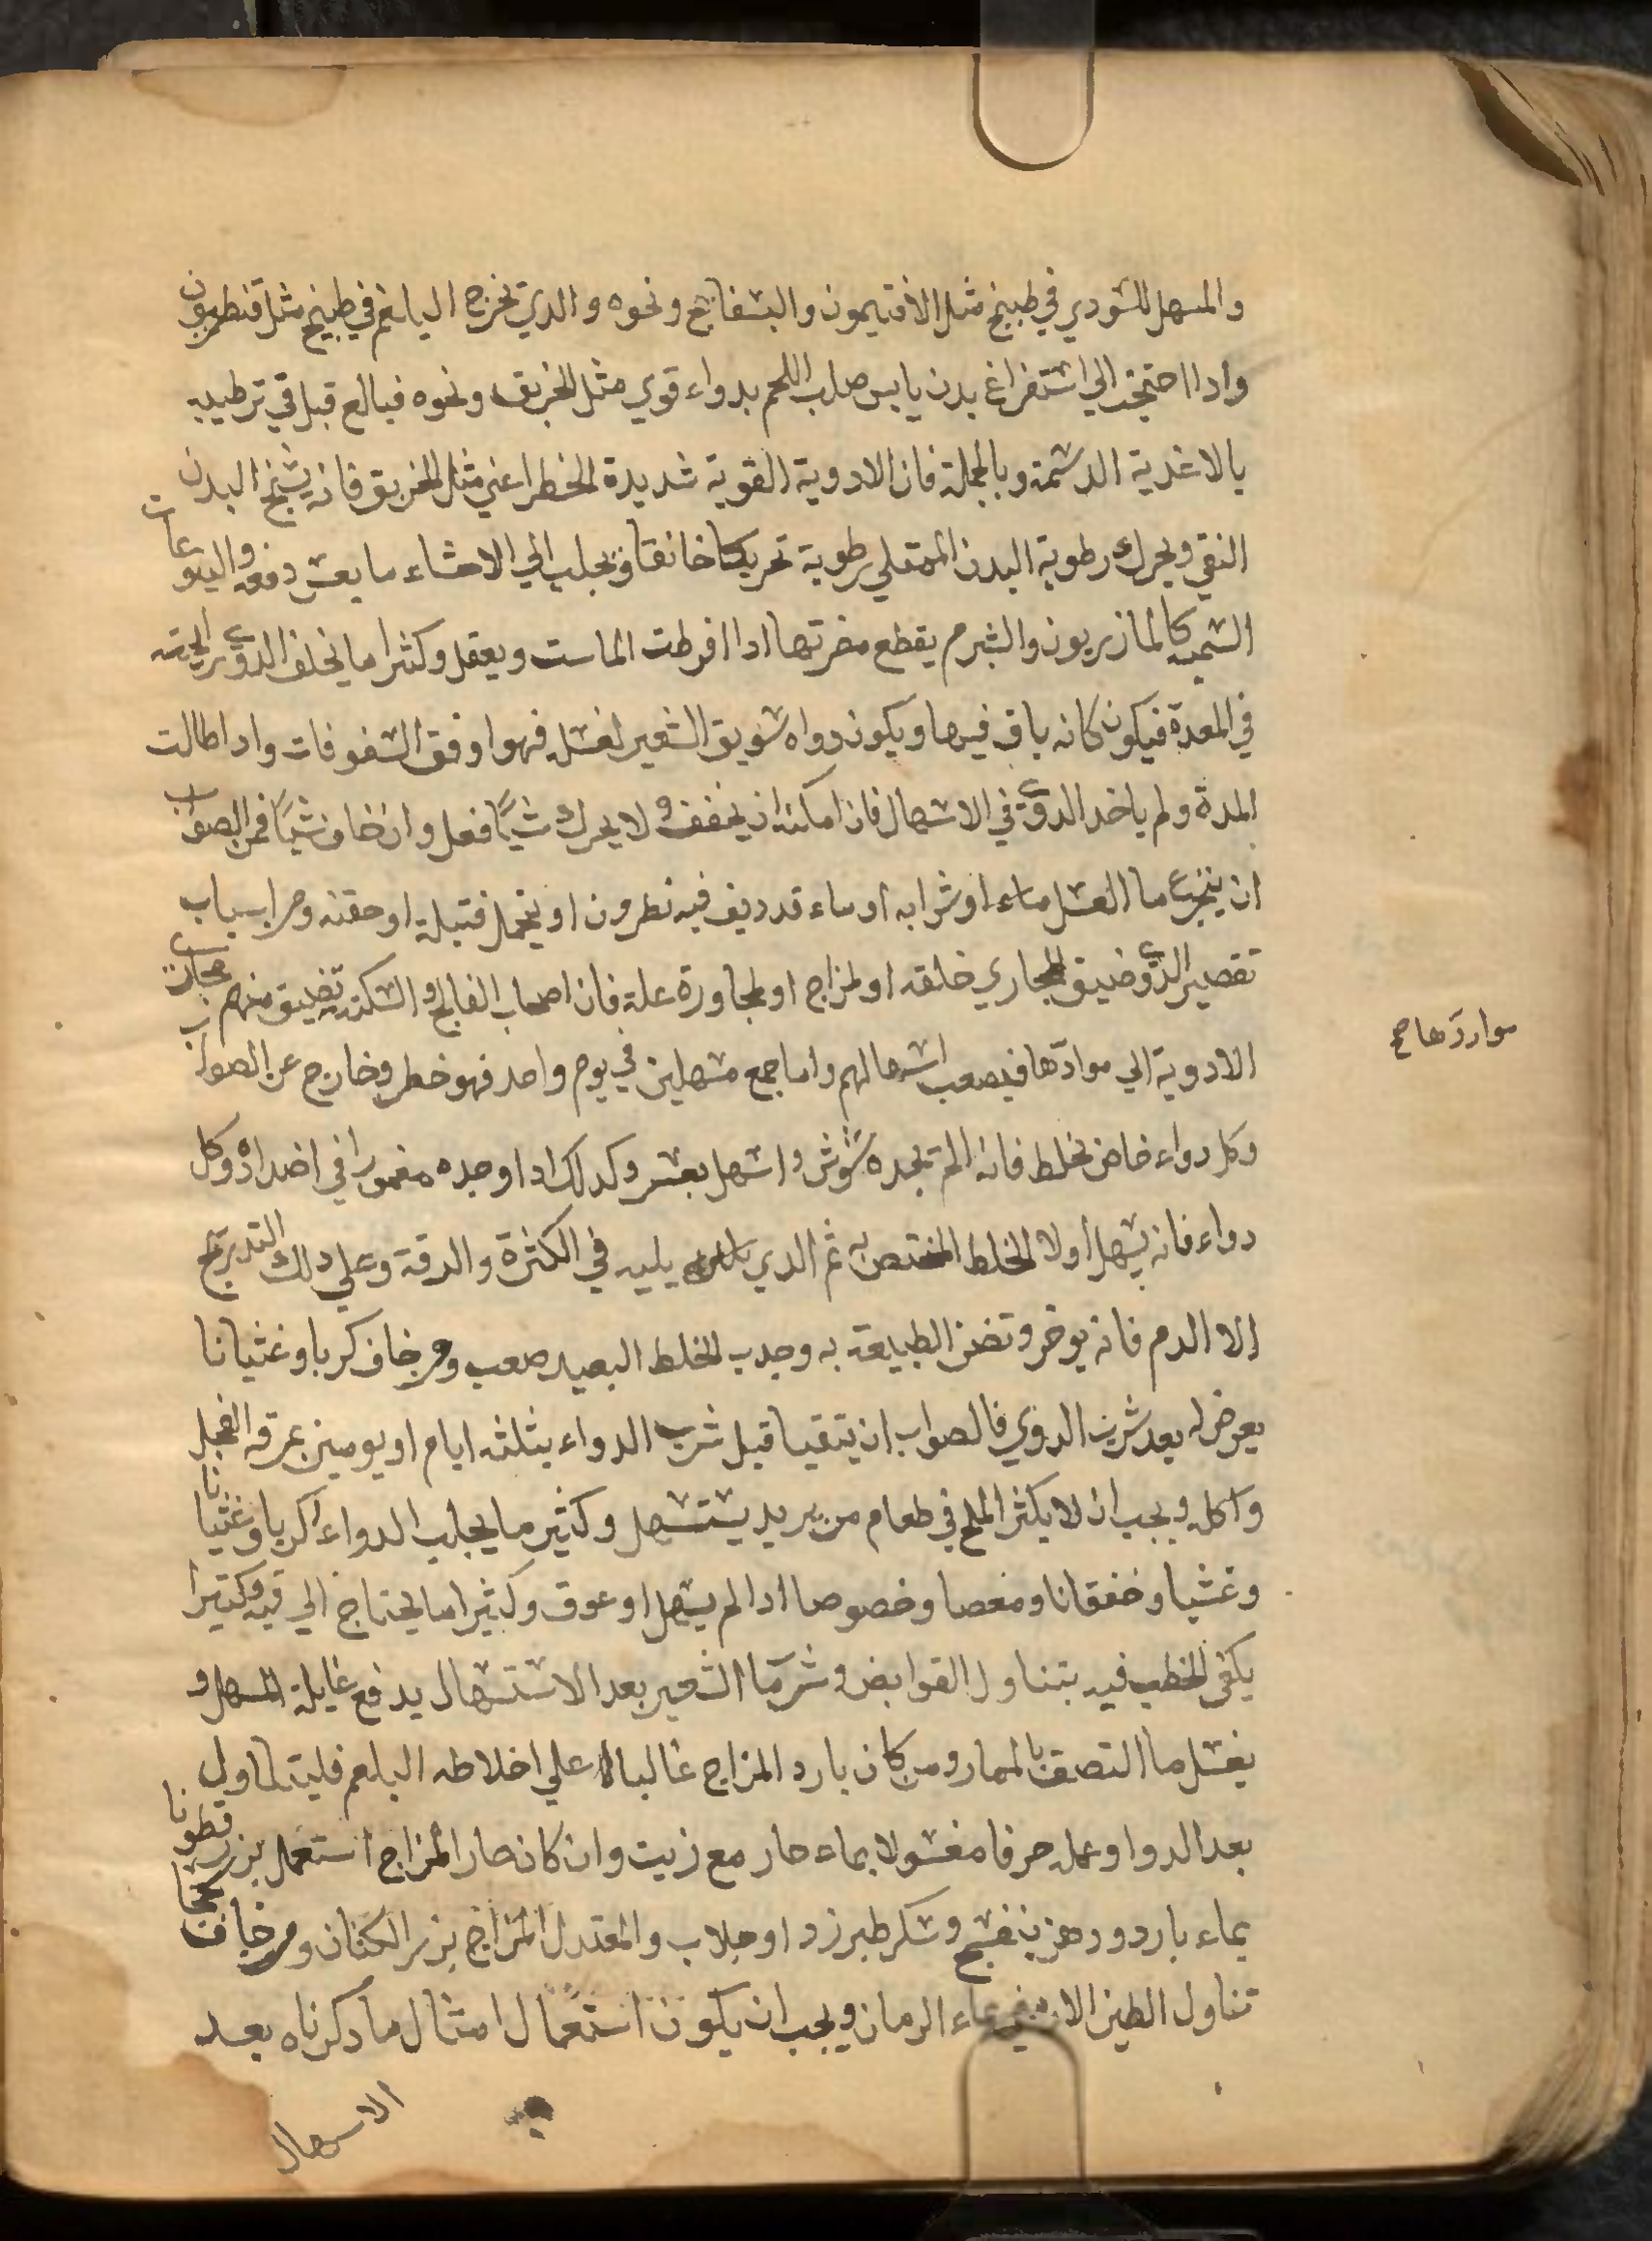 والمسهل للسودي في طبيخ مثل الافتيمون والبسفايج ونحوه والدي يخرج البلغم في طبيخ مثل قنطريون
وادا احتيج الي استفراغ بدن يابس صلب اللحم بدواء قوي مثل الخربق ونحوه فبالغ قبل في ترطيبه
بالاغدية الدسمة وبالجملة فان الادوية القوية شديدة الخطر اعني مثل الخربق فانه يشنج البدن
النقي ويحرك رطوبة البدن الممتلي رطوبة تحريكا خانقا ويجلب الي الاحشاء ما يعسر دفعه واليتوعات
السمية كالمازريون والشبرم يقطع مضرتها ادا افرطت الماست ويعقل وكثيرا ما يخلف الدوي رايحته
في المعدة فيكون كانه باق فيها ويكون دواه سويق الشعير لغسله فهو اوفق السفوفات وادا طالت
المدة ولم ياخد الدوي في الاسهال فان امكنه ان يخفف ولا يحرك شيًا فعل وان خاف شيًا فمن الصواب
ان يتجرع ما العسل ماء او شرابه او ماء قد ديف فيه نطرون او يتحمل فتيلة او حقنه ومن اسباب
تقصير الدوي ضيق المجاري خلقه او لمزاج او لمجاورة علة فان اصحاب الفالج والسكته تضيق منهم مجاري
الادوية الي موادها فيصعب اسهالهم واما جمع مسهلين في يوم واحد فهو خطر وخارج عن الصواب
مواردها صح
وكل دواء خاص بخلط فانه ادا لم يجده شوش واسهل بعسر وكدلك ادا وجده مغمورا في اضداده وكل
دواء فانه يسهل اولا الخلط المختص به ثم الدي يليه في الكثرة والدقة وعلي دلك التدريج
الا الدم فانه يوخره وتضن الطبيعة به وجدب الخلط البعيد صعب ومن خاف كربا وغثيانا
يعرض له بعد شرب الدوي فالصواب ان يتقيا قبل شرب الدواء بثلثه ايام او يومين بمرقه الفجل
واكله ويجب ان لا يكثر الملح في طعام من يريد يستسهل وكثير ما يجلب الدواء كربا وغثيانا
وغشيا وخفقانا ومغصا وخصوصا ادا لم يسهل او عوق وكثيرا ما يحتاج الي قيه وكثيرا
يكفي الخطب فيه بتناول القوابض وشرب ما الشعير بعد الاستسهال يدفع غايلة المسهل و
يغسل ما التصق بالممار ومن كان بارد المزاج غالبا علي اخلاطه البلغم فليتناول
بعد الدوا وعمله حرفا مغسولا بماء حار مع زيت وان كان حار المزاج استعمل بزرقطونا
بماء بارد ودهن بنفسج وسكر طبرزد او جلاب والمعتدل المزاج بزر الكتان ومن خاف سحجا
تناول الطين الارمني بماء الرمان ويجب ان يكون استعمال امثال ما دكرناه بعد
الاسهال